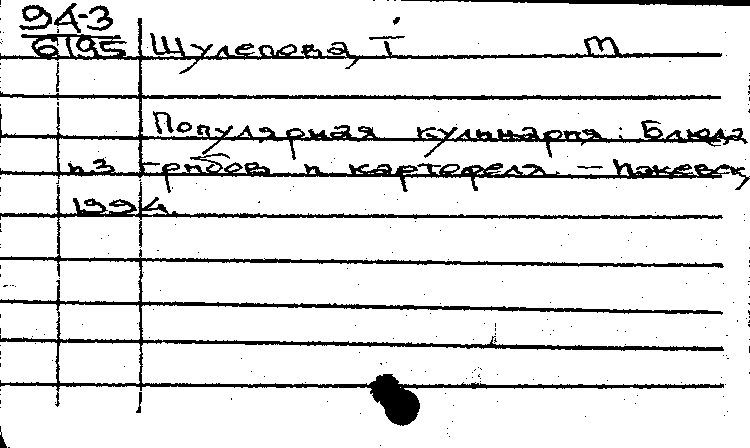 94-3
6195 Шулепова, Т m
Популярная кулинария: Блюда
из грибов и картофеля. – Ижевск,
1994.